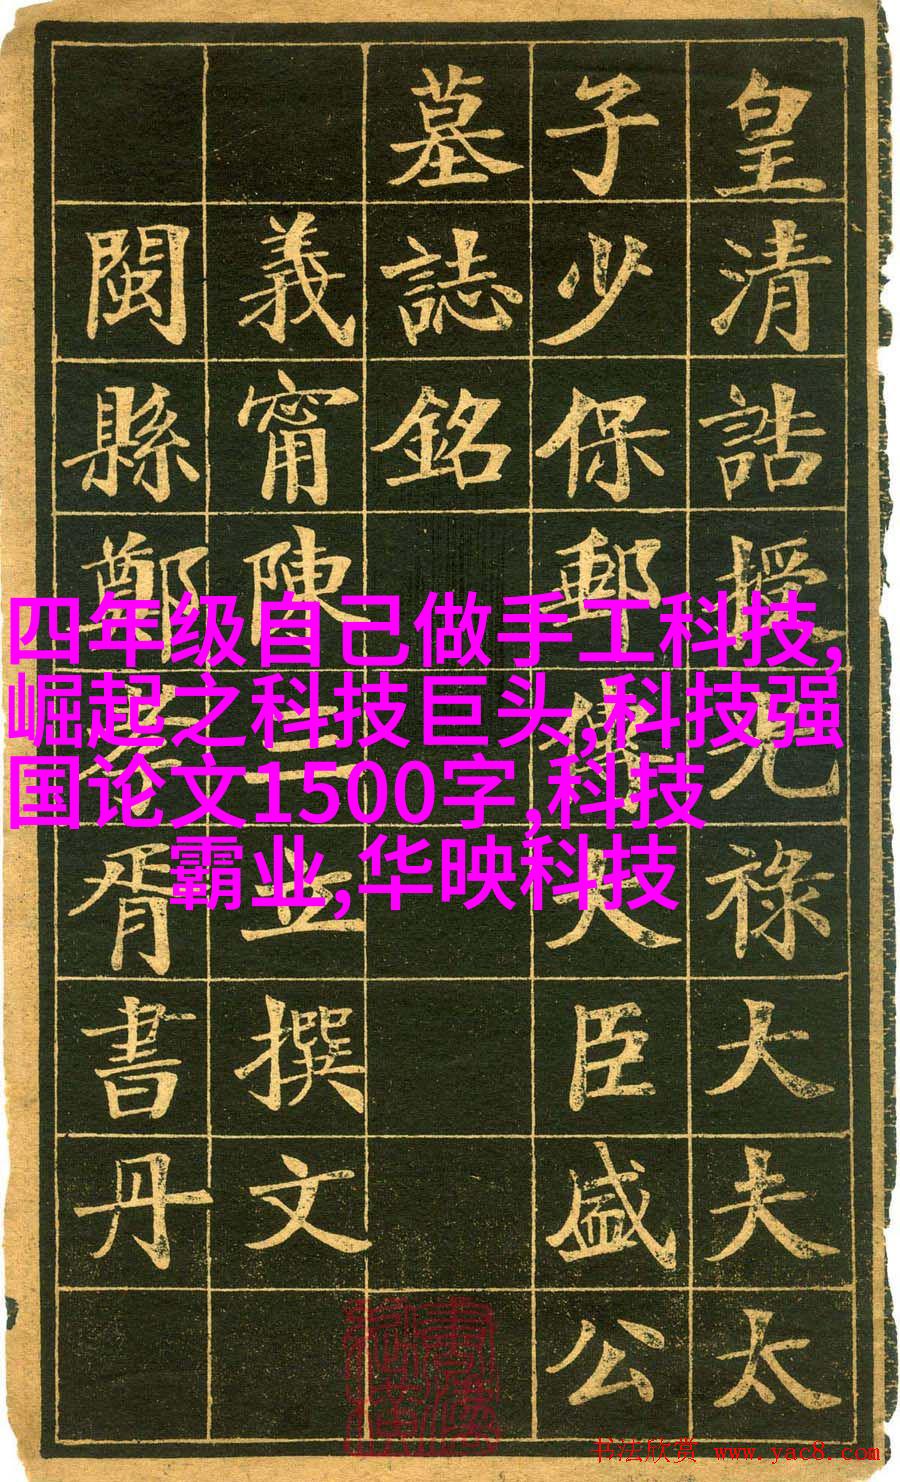 皇清誥授光祿大夫太
子少保郵傳大臣盛公
墓誌銘
義甯陳三立撰文
閩縣鄭孝胥書丹
四年级自己做手工科技,
崛起之科技巨头,科技强
国论文1500字,科技
霸业,华映科技
书法欣赏 www.yac8.com